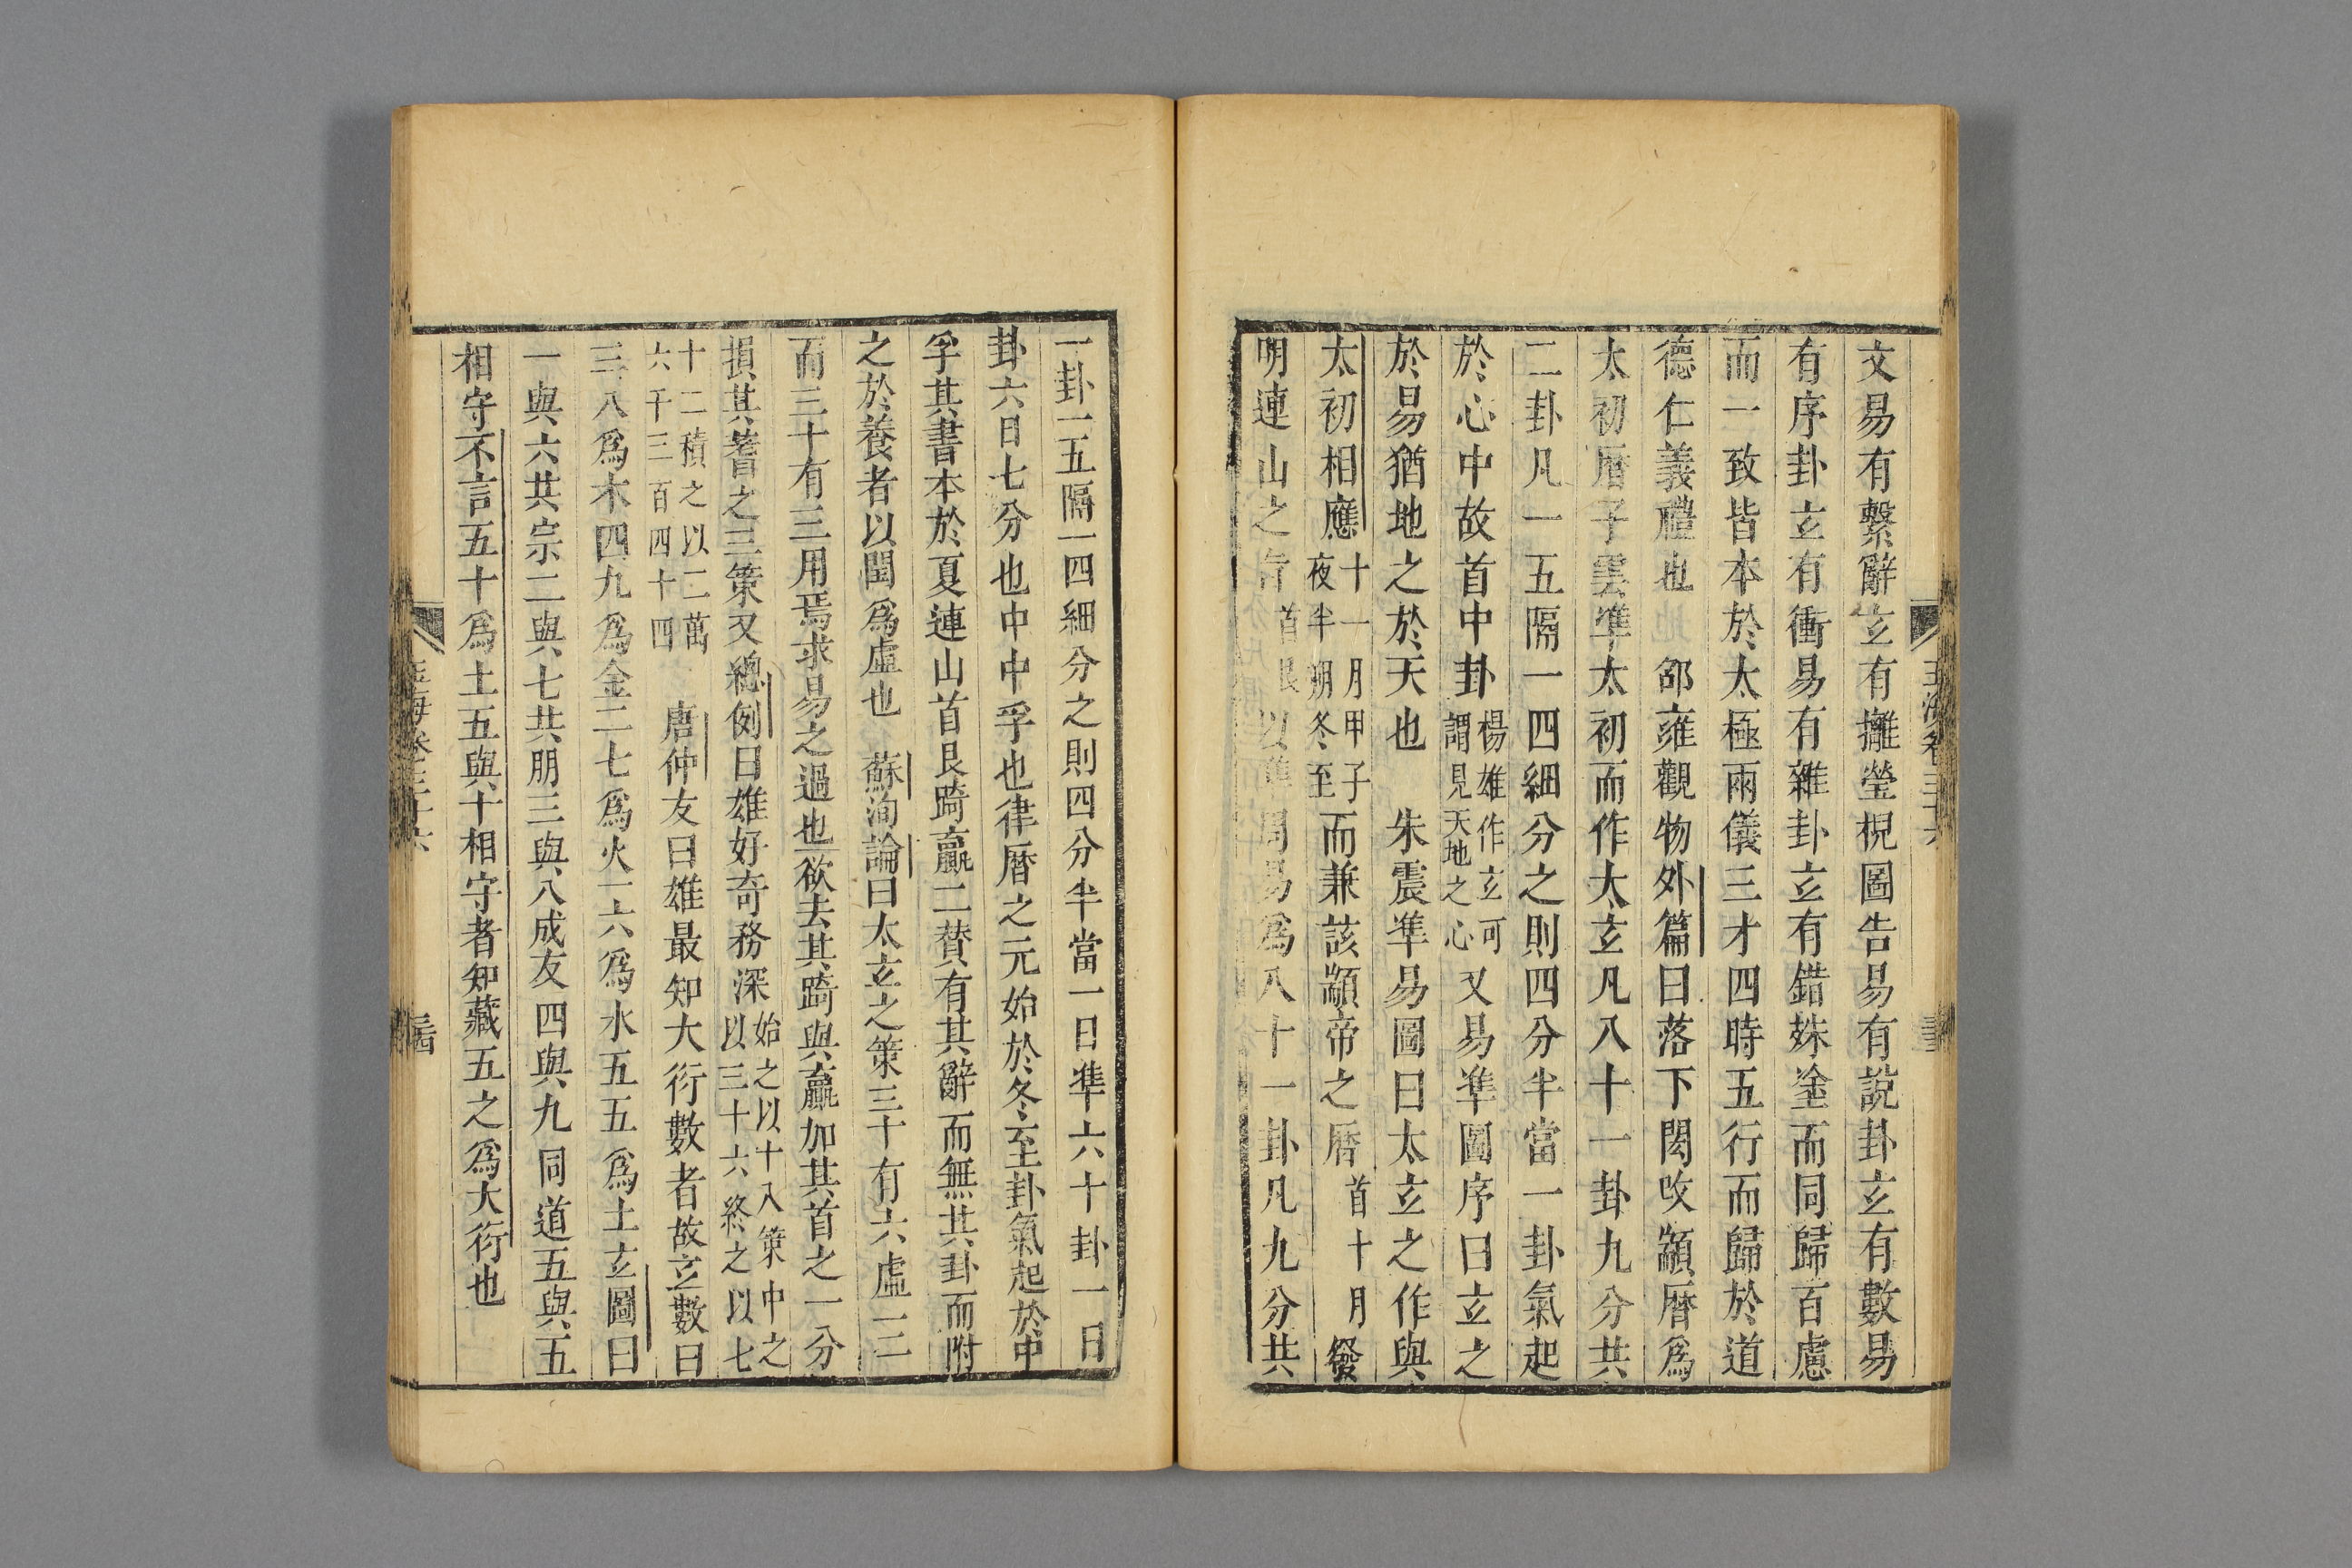 文易有繫辭玄有攡瑩掜圖告易有說卦玄有數易
有序卦玄有衝易有雜卦玄有錯姝塗而同歸百慮
而一致皆本於太極兩儀三才四時五行而歸於道
德仁義禮也　邵雍觀物外篇曰落下閎改顓曆爲
太初曆子雲準太初而作太玄凡八十一卦九分共
二卦凡一五隔一四細分之則四分半當一卦氣起
於心中故首中卦楊雄作玄可謂見天地之心又易準圖序曰玄之
於易猶地之於天也　朱震準易圖曰太玄之作與
太初相應十一月甲子夜半朔冬至而兼該顓帝之曆首十月發
明連山之旨首艮以準周易爲八十一卦凡九分共
一卦一五隔一四細分之則四分半當一日準六十卦一日
卦六日七分也中中孚也律曆之元始於冬至卦氣起於中
孚其書本於夏連山首艮踦贏二賛有其辭而無其卦而附
之於養者以閏爲虛也　蘇洵論曰太玄之策三十有六虛三
而三十有三用焉求易之過也欲去其踦與贏加其首之一分
損其蓍之三策又總例曰雄好奇務深始之以十八策中之以三十六終之以七
十二積之以二萬六千三百四十四　唐仲友曰雄最知大衍數者故玄數曰
三八爲木四九爲金二七爲火一六爲水五五爲土玄圖曰
一與六共宗二與七共朋三與八成友四與九同道五與五
相守不言五十爲土五與十相守者知藏五之爲大衍也
玉海卷三十六